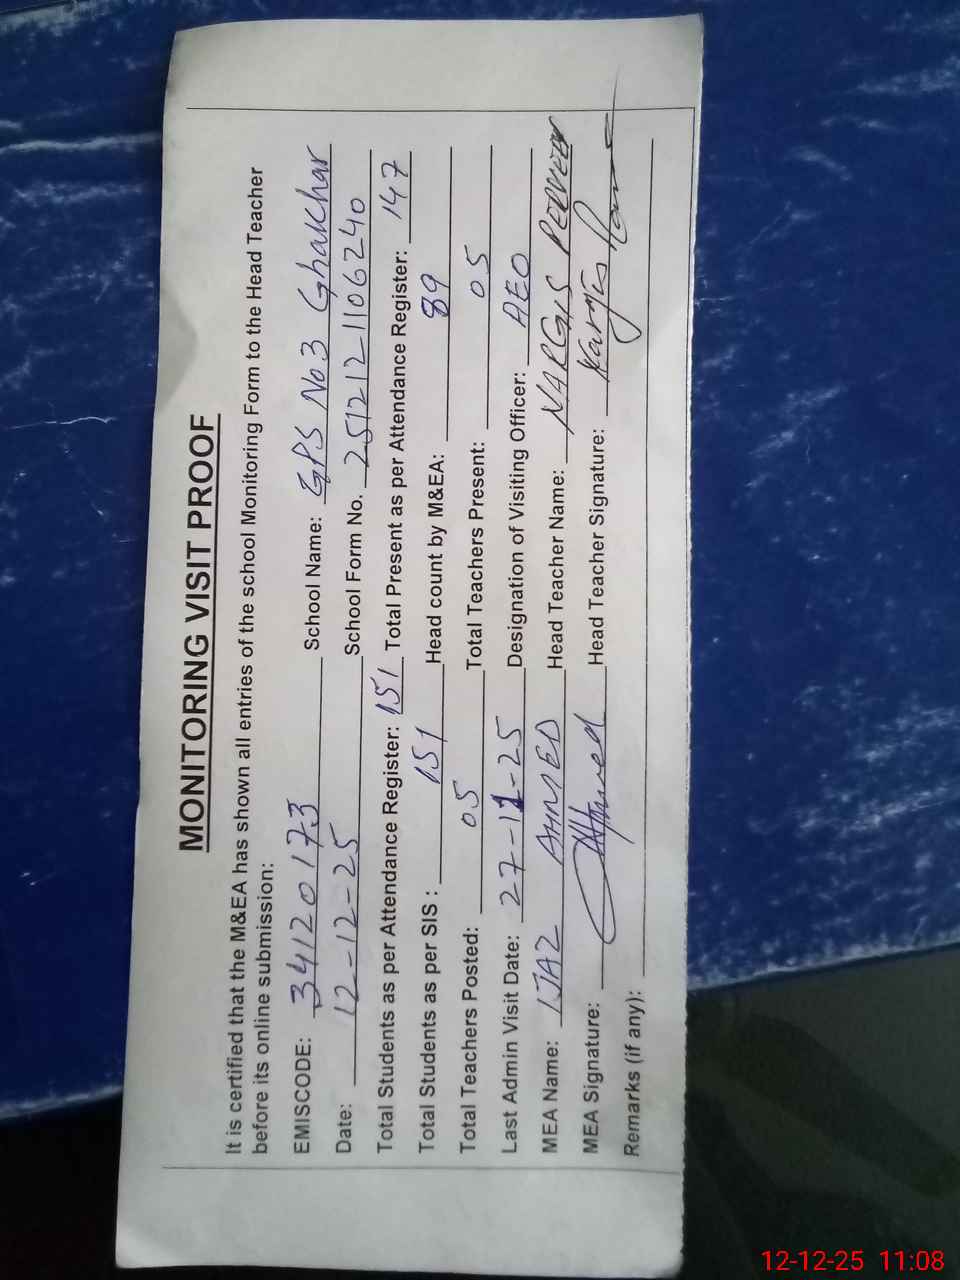 MONITORING VISIT PROOF
It is certified that the M&EA has shown all entries of the school Monitoring Form to the Head Teacher
before its online submission:
EMISCODE: 34120173 School Name: GPS No.3 Ghakhar
Date: 12-12-25 School Form No. 2512121106240
Total Students as per Attendance Register: 151 Total Present as per Attendance Register: 147
Total Students as per SIS : 151 Head count by M&EA: 89
Total Teachers Posted: 05 Total Teachers Present: 05
Last Admin Visit Date: 27-11-25 Designation of Visiting Officer: AEO
MEA Name: IJAZ AHMED Head Teacher Name: NARGIS PERVEEN
MEA Signature: Head Teacher Signature: Nargis
Remarks (if any):
12-12-25 11:08